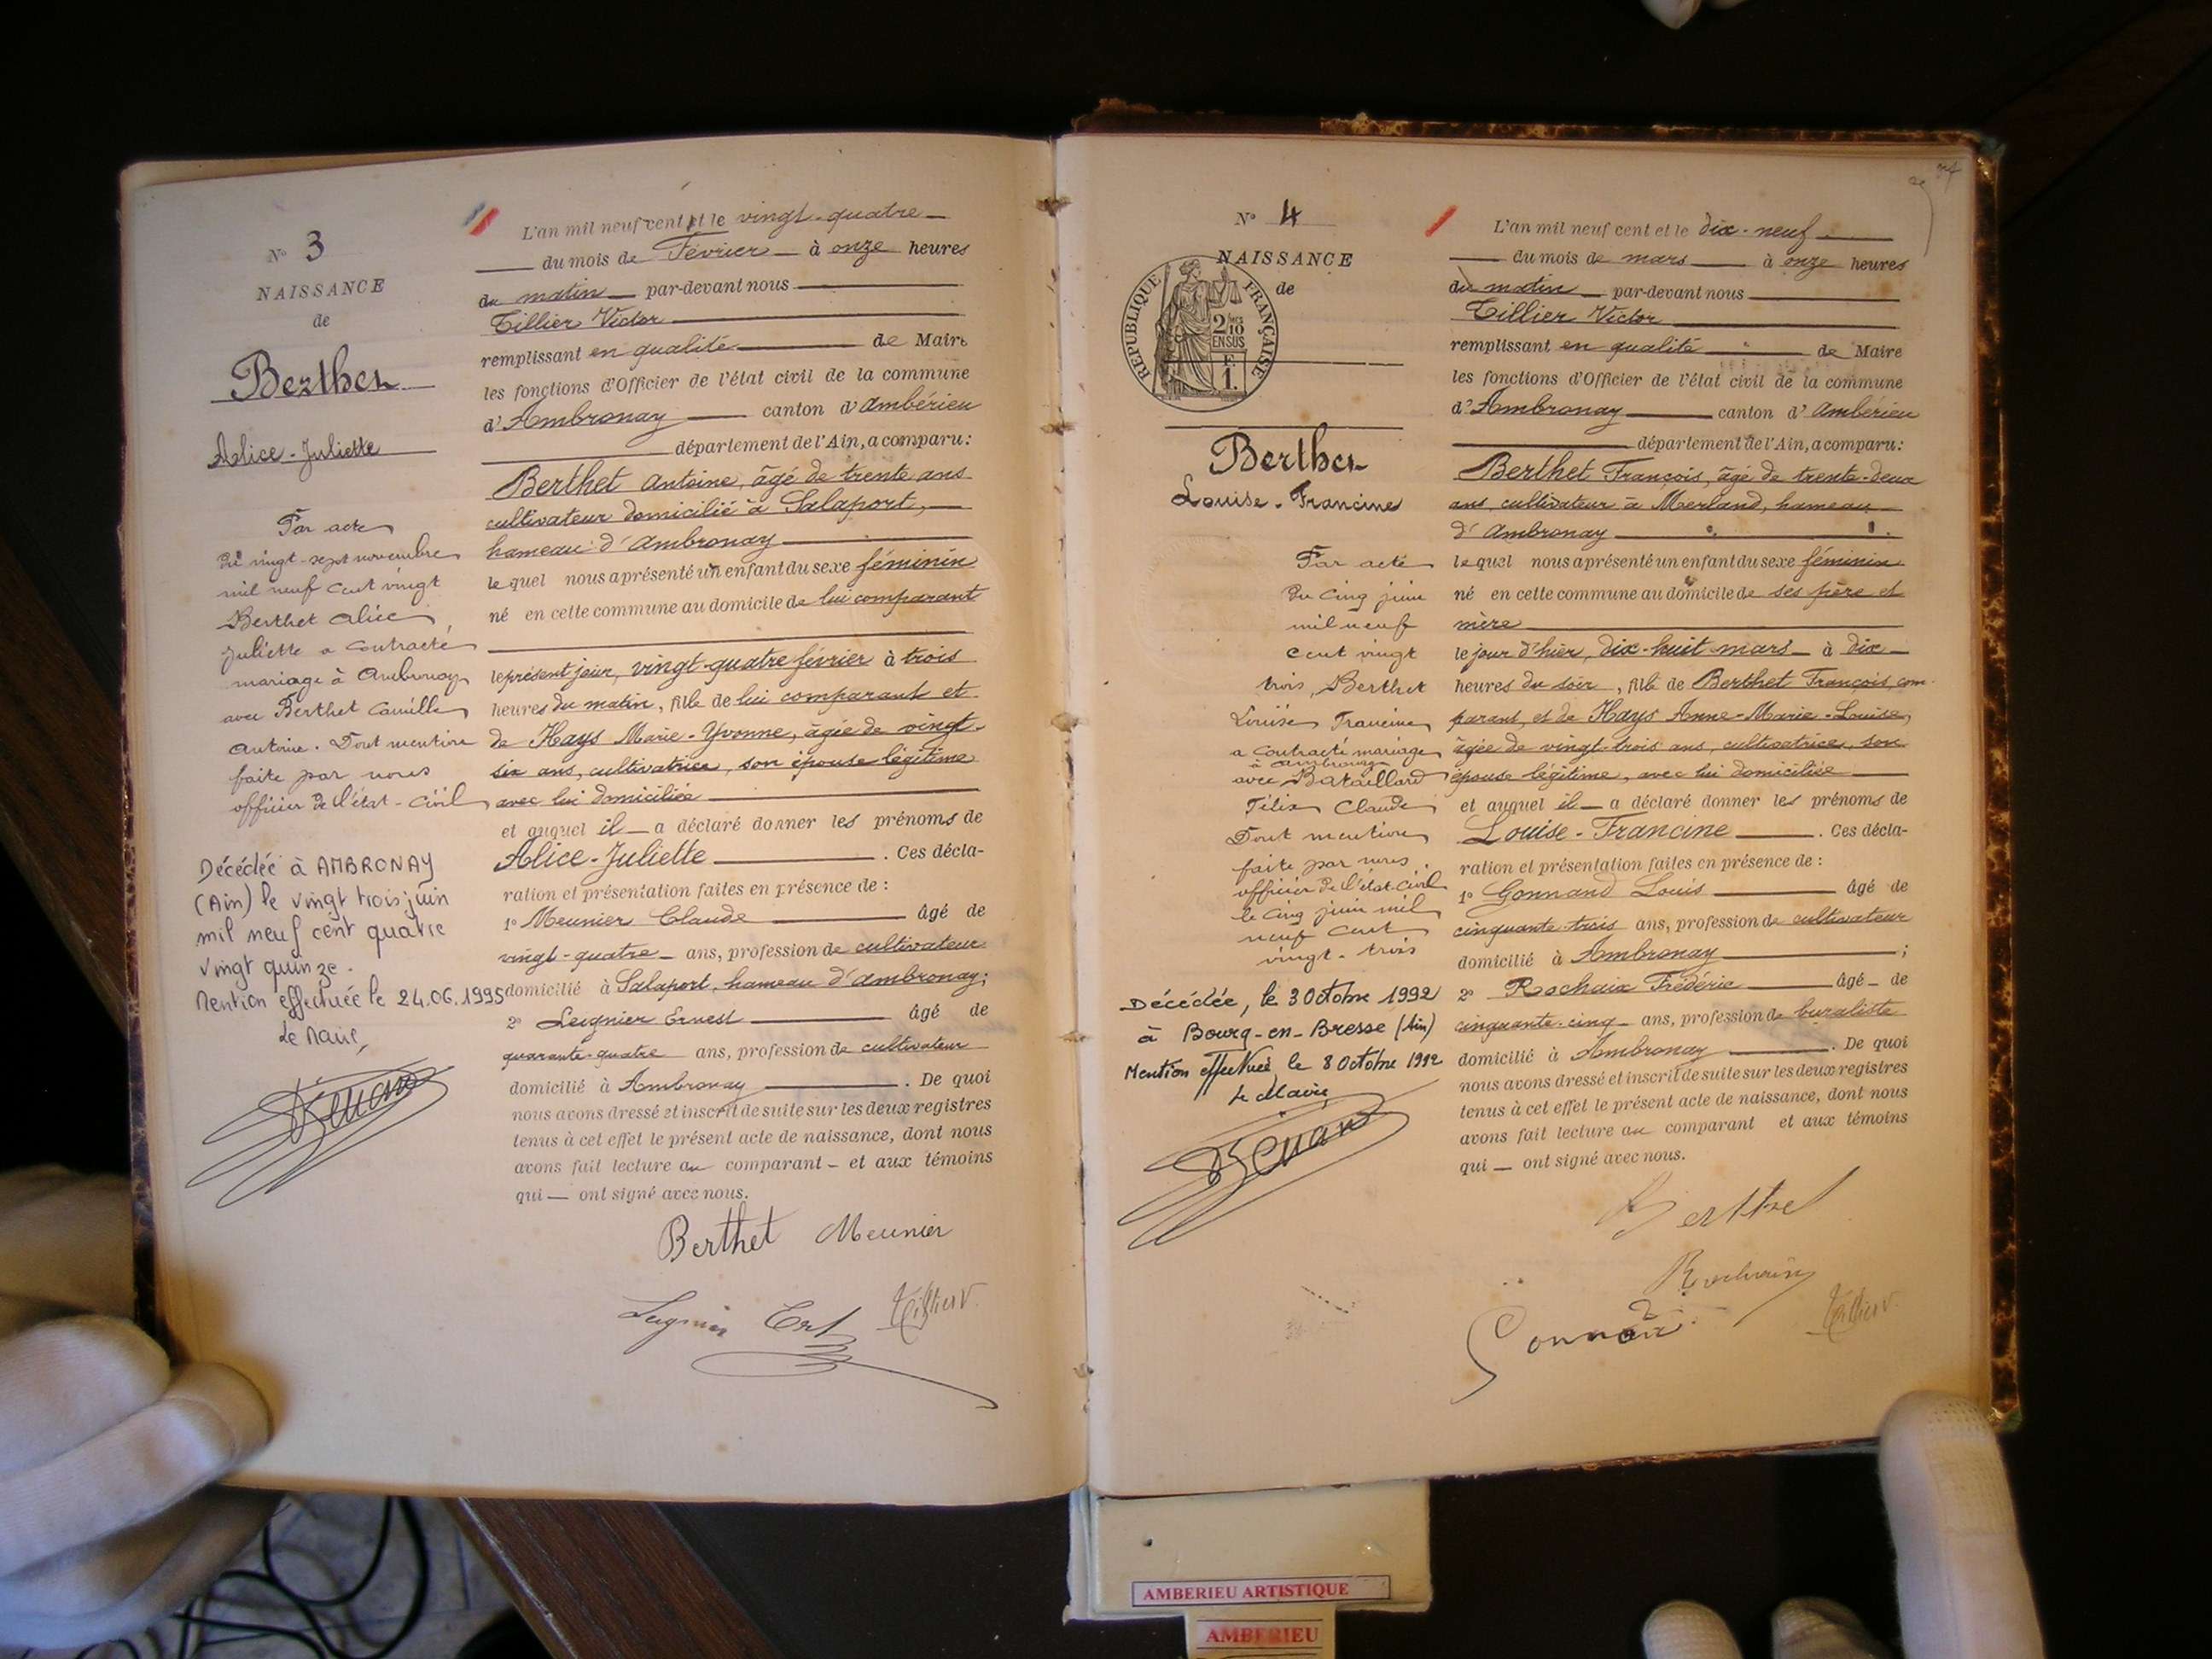 N° 3
NAISSANCE
de
Berthet
Alice-Juliette
Par acte
du vingt-sept novembre
mil neuf cent vingt
Berthet Alice
Juliette a contracté
mariage à Ambronay
avec Berthet Camille
Antoine. Dont mention
faite par nous
officier de l'état-civil
Décédée à AMBRONAY
(Ain) le vingt trois juin
mil neuf cent quatre
vingt quinze.
Mention effectuée le 24.06.1995
Le Maire,
L'an mil neuf cent et le vingt-quatre
du mois de Février à onze heures
du matin par-devant nous
Tillier Victor
remplissant en qualité de Maire
les fonctions d'Officier de l'état civil de la commune
d'Ambronay canton d'Ambérieu
département de l'Ain, a comparu:
Berthet Antoine, âgé de trente ans
cultivateur domicilié à Salaport,
hameau d'Ambronay
lequel nous a présenté un enfant du sexe féminin
né en cette commune au domicile de lui comparant
le présent jour, vingt-quatre février à trois
heures du matin, fille de lui comparant et
de Hays Marie-Yvonne, âgée de vingt-
six ans, cultivatrice, son épouse légitime
avec lui domiciliée
et auquel il a déclaré donner les prénoms de
Alice-Juliette. Ces décla-
ration et présentation faites en présence de:
1° Meunier Claude âgé de
vingt-quatre ans, profession de cultivateur
domicilié à Salaport, hameau d'Ambronay;
2° Leignier Ernest âgé de
quarante-quatre ans, profession de cultivateur
domicilié à Ambronay. De quoi
nous avons dressé et inscrit de suite sur les deux registres
tenus à cet effet le présent acte de naissance, dont nous
avons fait lecture au comparant et aux témoins
qui ont signé avec nous.
Berthet Meunier
Tillier V
N° 4
NAISSANCE
de
REPUBLIQUE FRANÇAISE
2/10
EN SUS
F.
1.
Berthet
Louise-Francine
Par acte
du cinq juin
mil neuf
cent vingt
trois, Berthet
Louise Francine
a contracté mariage
à Ambronay
avec Bataillard
Félix Claude
Dont mention
faite par nous
officier de l'état-civil
le cinq juin mil
neuf cent
vingt-trois
Décédée, le 3 Octobre 1992
à Bourg-en-Bresse (Ain)
Mention effectuée, le 8 Octobre 1992
Le Maire,
L'an mil neuf cent et le dix-neuf
du mois de mars à onze heures
du matin par-devant nous
Tillier Victor
remplissant en qualité de Maire
les fonctions d'Officier de l'état civil de la commune
d'Ambronay canton d'Ambérieu
département de l'Ain, a comparu:
Berthet François, âgé de trente-deux
ans, cultivateur à Merland, hameau
d'Ambronay
lequel nous a présenté un enfant du sexe féminin
né en cette commune au domicile de ses père et
mère
le jour d'hier, dix-huit mars à dix
heures du soir, fille de Berthet François com-
parant, et de Hays Anne-Marie-Louise,
âgée de vingt-trois ans, cultivatrice, son
épouse légitime, avec lui domiciliée
et auquel il a déclaré donner les prénoms de
Louise-Francine. Ces décla-
ration et présentation faites en présence de:
1° Gonnand Louis âgé de
cinquante-trois ans, profession de cultivateur
domicilié à Ambronay;
2° Rochaix Frédéric âgé de
cinquante-cinq ans, profession de buraliste
domicilié à Ambronay. De quoi
nous avons dressé et inscrit de suite sur les deux registres
tenus à cet effet le présent acte de naissance, dont nous
avons fait lecture au comparant et aux témoins
qui ont signé avec nous.
Berthet
Rochaix
Tillier V
AMBERIEU ARTISTIQUE
AMBERIEU